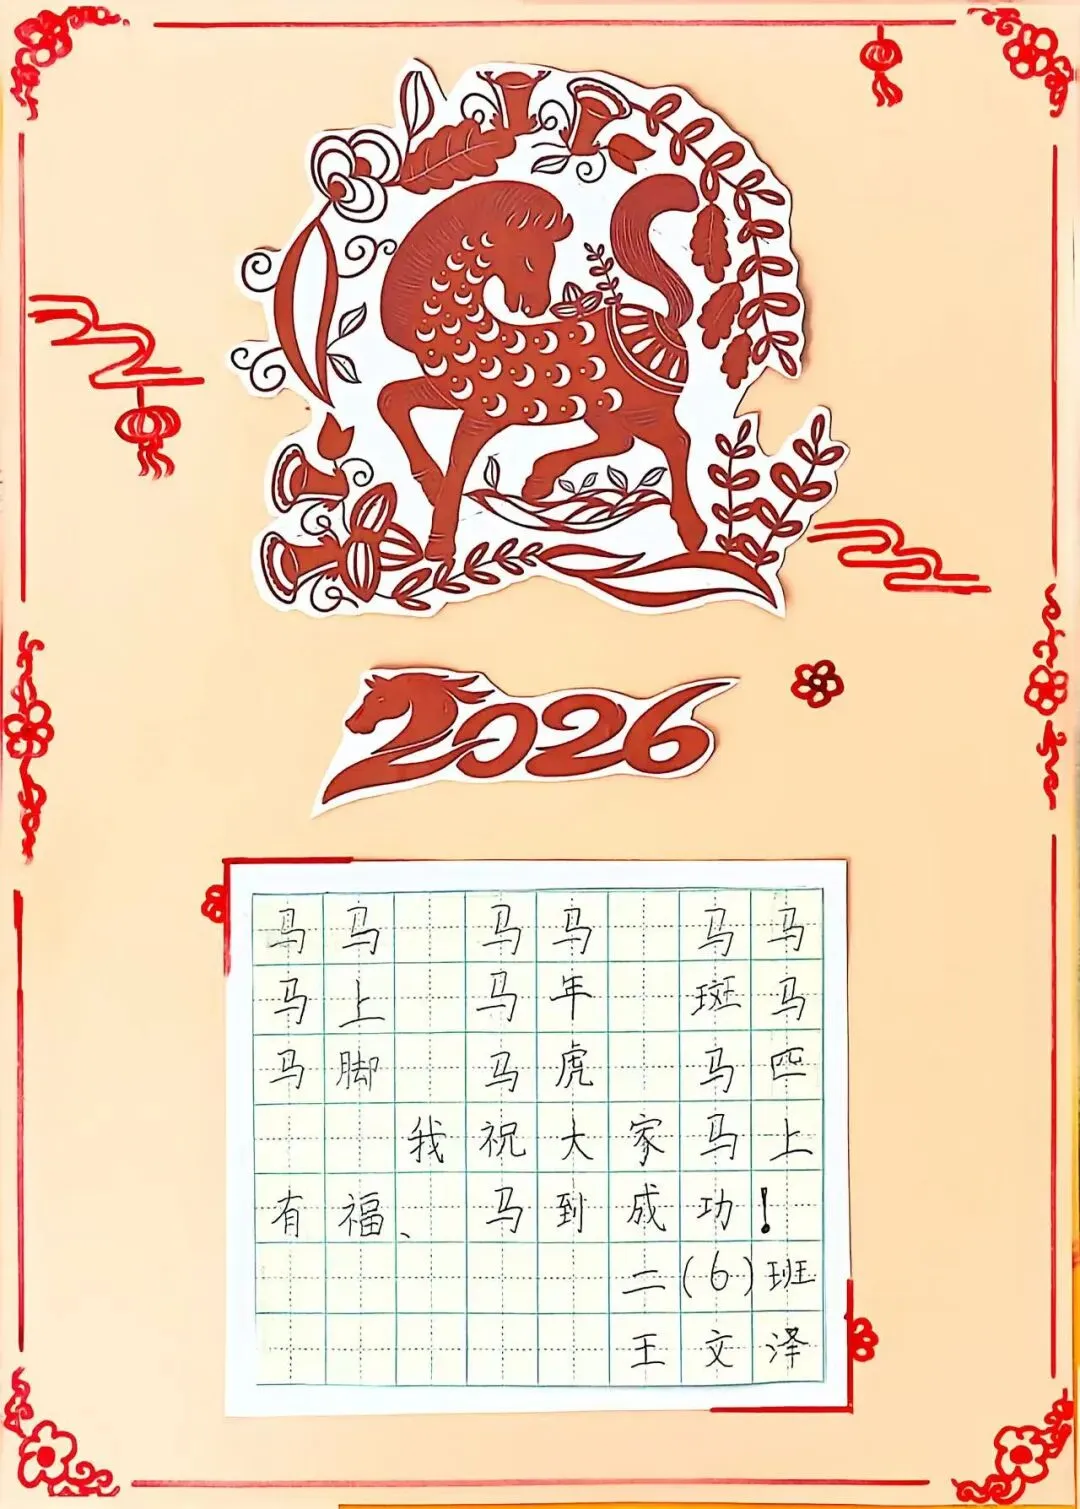 2026
马马 马马 马马
马上 马年 斑马
马脚 马虎 马匹
我祝大家马上
有福、马到成功!
二(6)班
王文泽